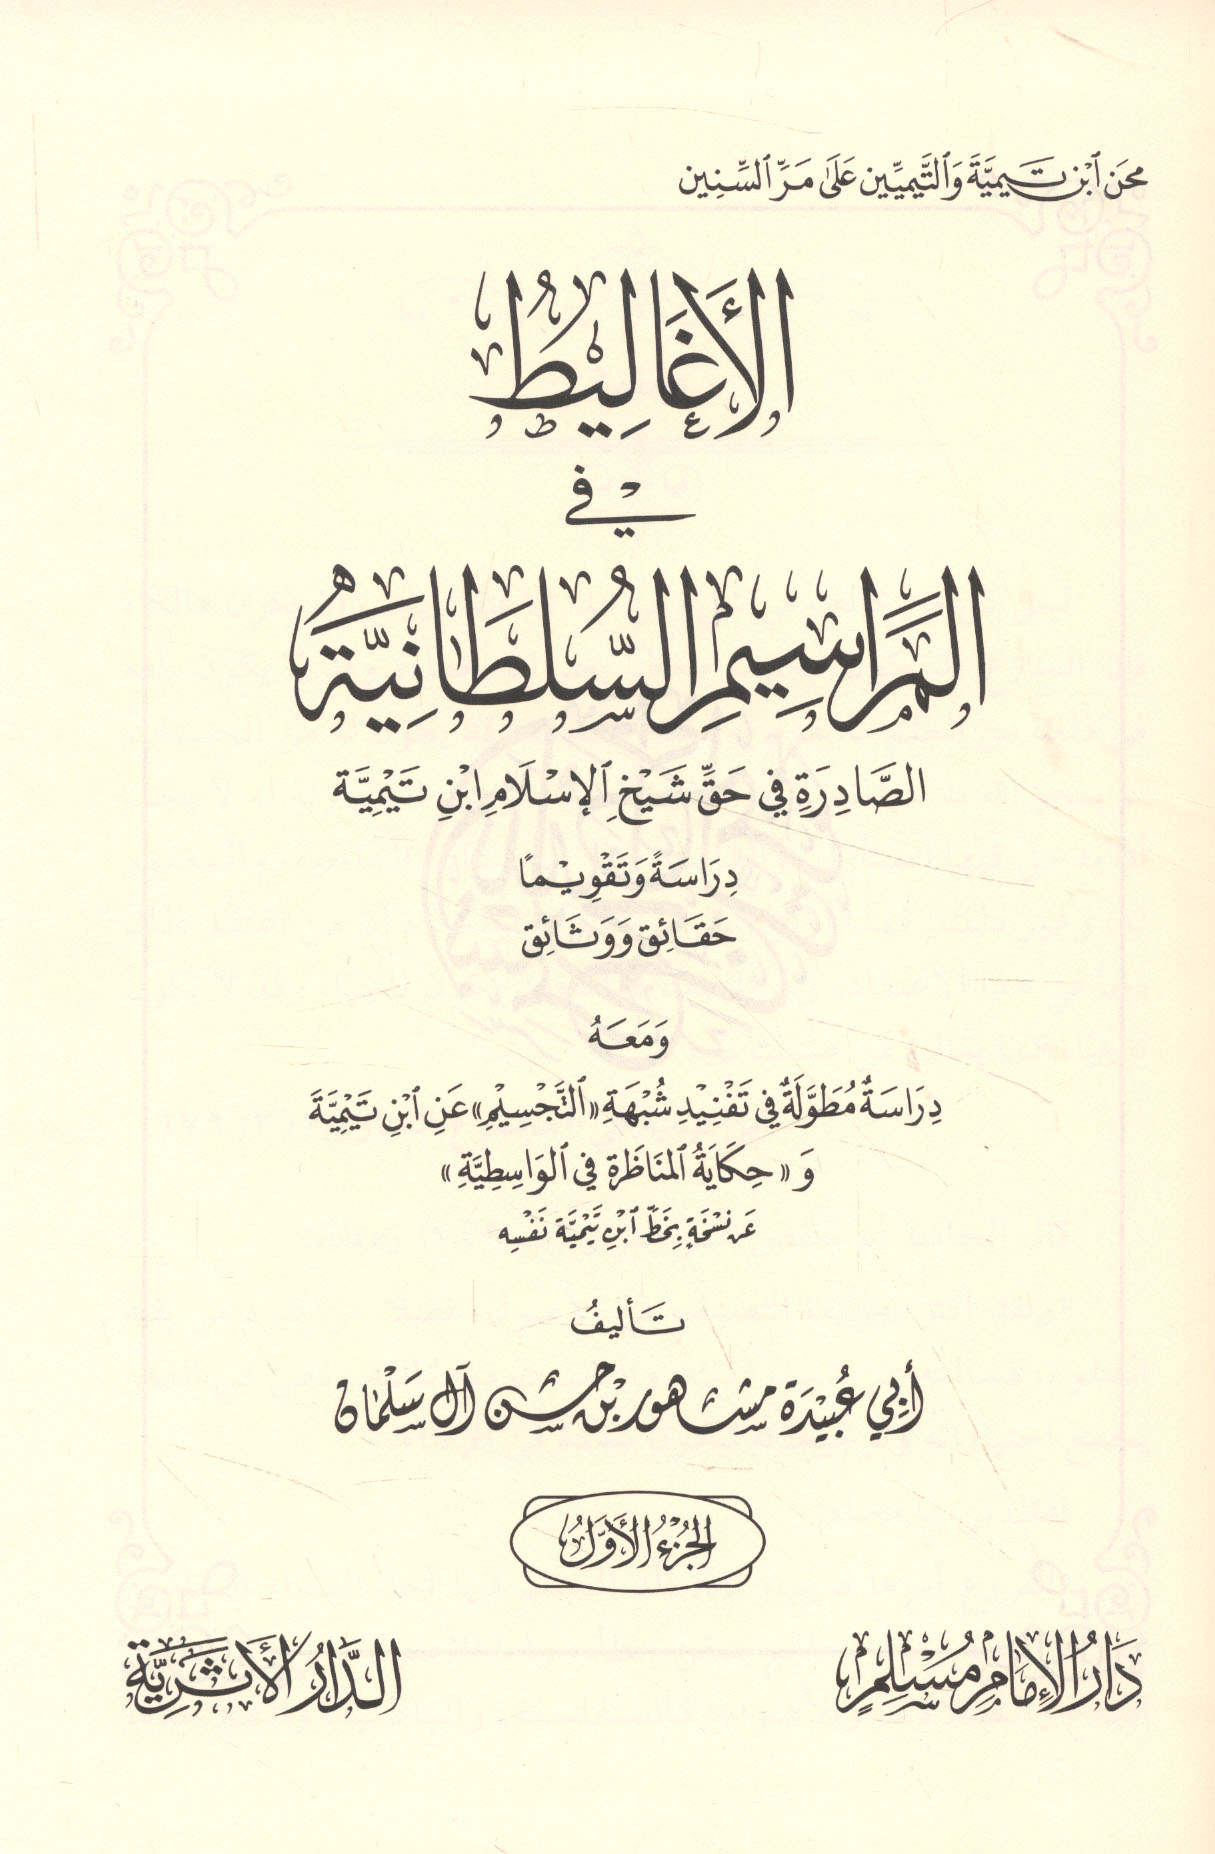 محَن ٱبْن تَيمِيَّةَ وَٱلتَّيمِيِّين عَلَى مَرِّ ٱلسِّنِين
الأَغَالِيطُ
في
المَرَاسِيمِ السُّلطَانِيَّةِ
الصَّادِرَةِ في حَقِّ شَيْخِ ٱلإِسْلَامِ ابْنِ تَيْمِيَّة
دِرَاسَةً وَتَقْوِيْمًا
حَقَائِق وَوَثَائِق
وَمَعَهُ
دِرَاسَةٌ مُطَوَّلَةٌ في تَفْنِيْدِ شُبْهَةِ «ٱلتَّجْسِيْمِ» عَنِ ٱبْنِ تَيْمِيَّةَ
وَ «حِكَايَةُ ٱلمنَاظَرة في ٱلوَاسِطِيَّةِ»
عَن نسْخَةٍ بِخَطِّ ٱبْنِ تَيْمِيَّة نَفْسِه
تَأليفُ
أَبِي عُبَيْدَة مشهور بْن حسَن آل سَلْمَان
الجُزْءُ الأَوَّلُ
دَارُ الإِمَامِ مُسْلِمٍ
الدَّارُ الأَثَرِيَّة